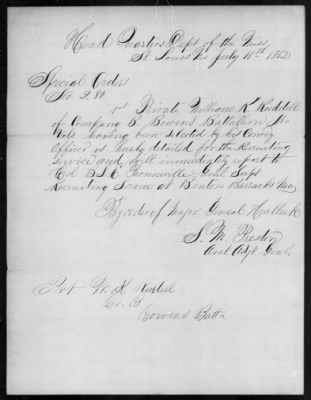 Head Quarters Dept of the Miss
St Louis Mo July 11th 1862
Special Orders
No 284
Private William K Ruddell
of Company B Bowens Battalion Mo
Vols having been selected by his Comg
Officer is hereby detailed for the Recruiting
Service and will immediately report to
Col B L E Bonneville Genl Supt
Recruiting Service at Benton Barracks Mo
By order of Major General Halleck
S. M. Preston
Asst Adjt Genl
Pvt W. K.
Co. B
Bowens Battn